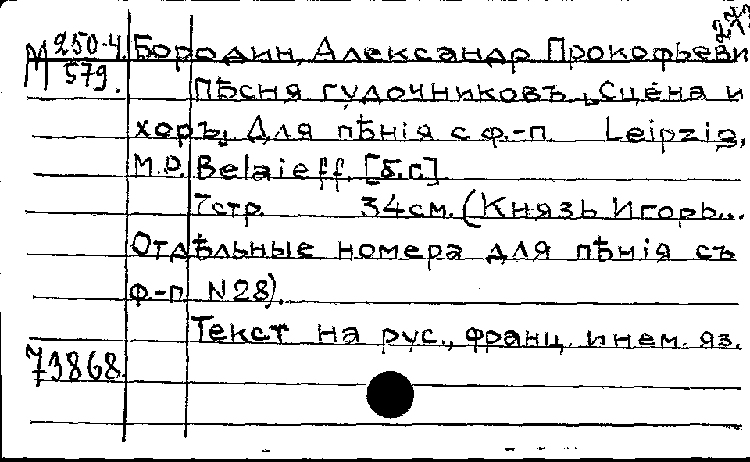 М 250-4 Бородин, Александр Прокофьеви
579. Пѣсня гудочниковъ, Сцена и
хоръ, Для пѣнія с ф.-п. Leipzig,
M.P. Belaieff. [б.г.]
7 стр. 34 см. (Князь Игорь...
Отдѣльные номера для пѣнія съ
ф.-п. N28).
Текст на рус., франц. и нем. яз.
73868.